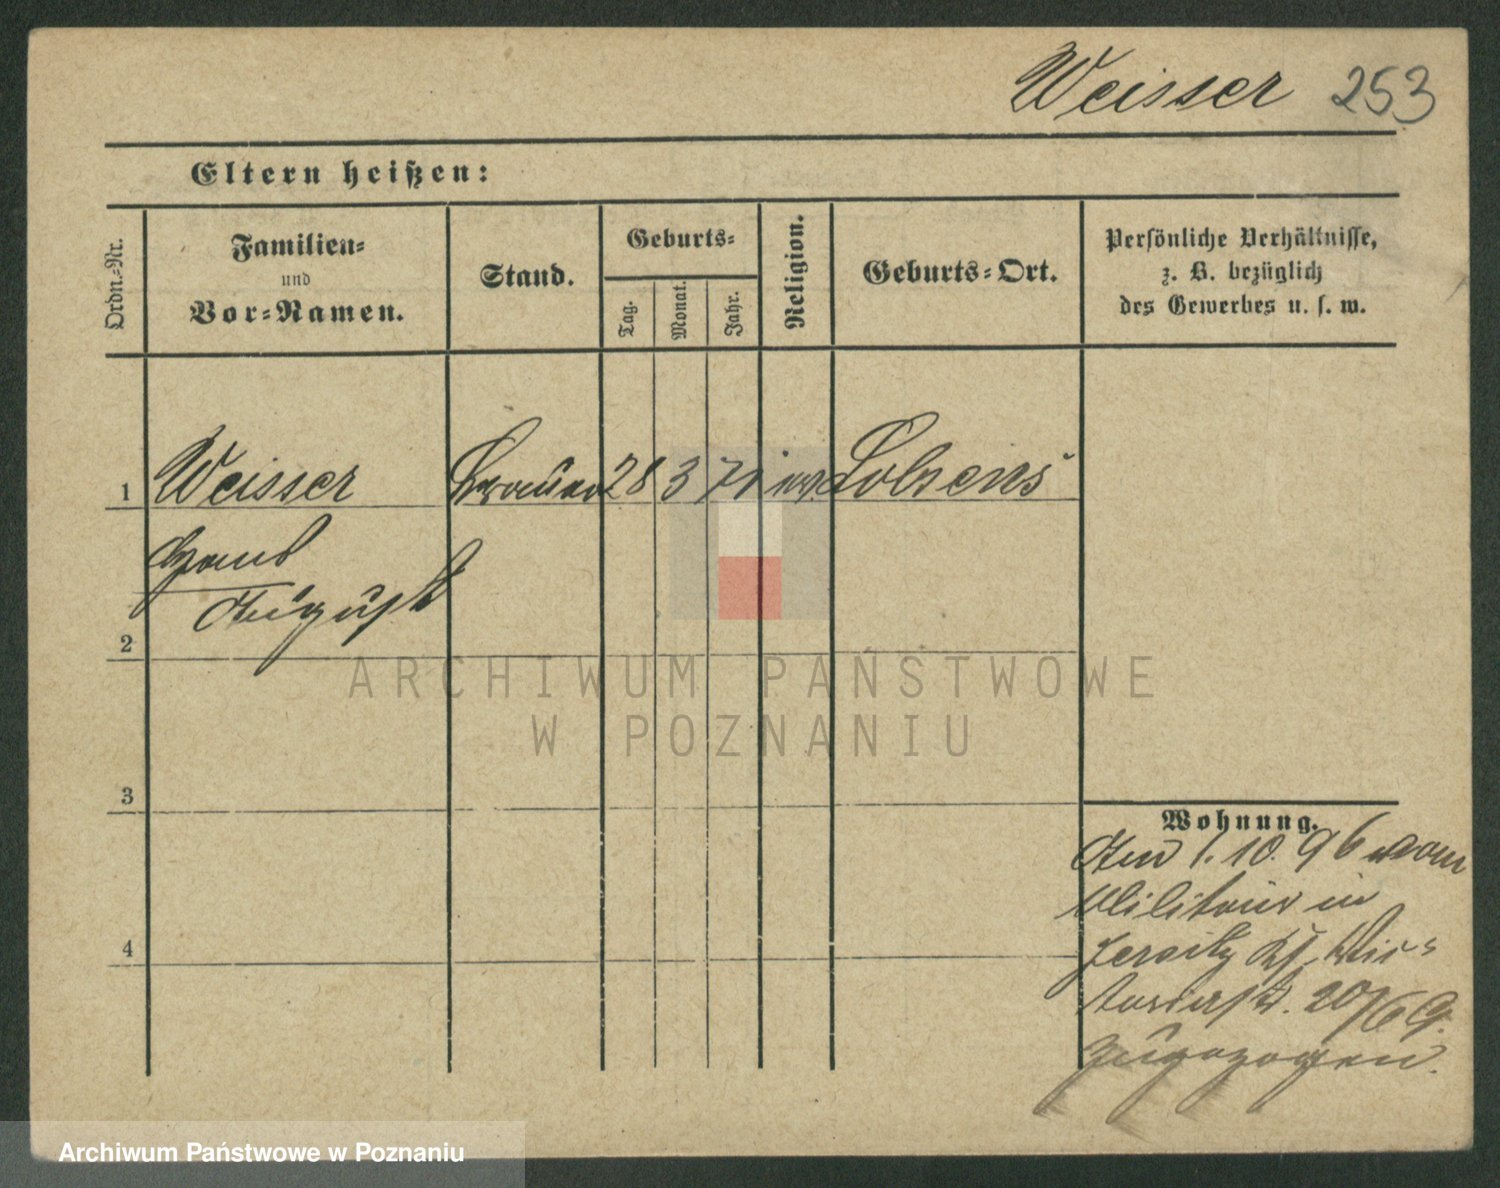 Weisser 253
Eltern heißen:
Ordn.-Nr.
Familien-
und
Vor-Namen.
Stand.
Geburts-
Tag.
Monat.
Jahr.
Religion.
Geburts-Ort.
Persönliche Verhältnisse,
z. B. bezüglich
des Gewerbes u. s. w.
1 Weisser 28 3 71 Lobsens
Hans
August
2
3
4
Wohnung.
Am 1. 10. 96 vom
Militair in
Jersitz Vic-
toriastr. 20
zugezogen.
ARCHIWUM PAŃSTWOWE
W POZNANIU
Archiwum Państwowe w Poznaniu